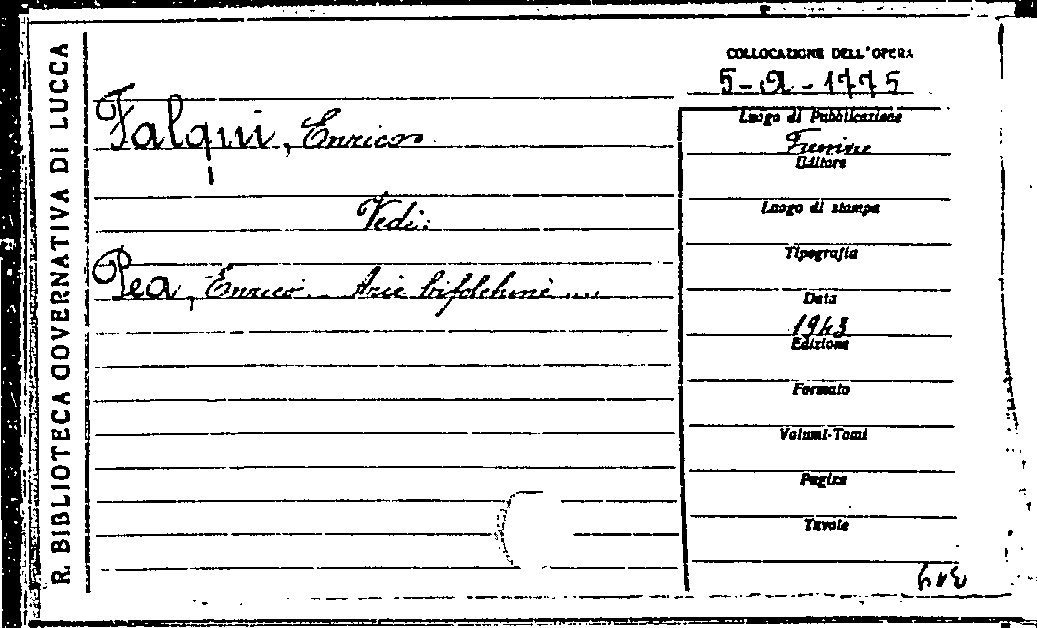 R. BIBLIOTECA GOVERNATIVA DI LUCCA
Falqui, Enrico
Vedi:
Pea, Enrico Arie bifolchine ....
COLLOCAZIONE DELL'OPERA
5-a-1775
Luogo di Pubblicazione
Firenze
Editore
Luogo di stampa
Tipografia
Data
1943
Edizione
Formato
Volumi-Tomi
Pagine
Tavole